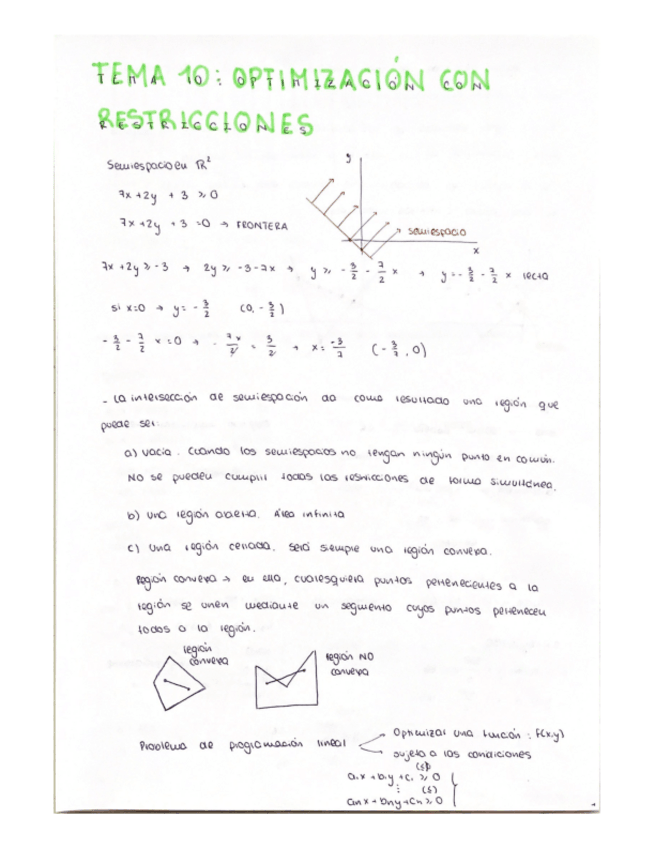 TEMA 10: OPTIMIZACIÓN CON
RESTRICCIONES
Semiespacio en R²
7x+2y + 3 ≥ 0
7x+2y + 3 = 0 → FRONTERA
y
semiespacio
x
7x+2y ≥ -3 → 2y ≥ -3-7x → y ≥ -3/2 - 7/2 x → y = -3/2 - 7/2 x recta
si x=0 → y = -3/2 (0, -3/2)
-3/2 - 7/2 x = 0 → -7x/2 = 3/2 → x = -3/7 (-3/7, 0)
- La intersección de semiespacios da como resultado una región que
puede ser:
a) vacía. Cuando los semiespacios no tengan ningún punto en común.
NO se pueden cumplir todas las restricciones de forma simultánea.
b) una región abierta. Área infinita
c) una región cerrada. Será siempre una región convexa.
Región convexa → en ella, cualesquiera puntos pertenecientes a la
región se unen mediante un segmento cuyos puntos pertenecen
todos a la región.
región
convexa
región NO
convexa
Problema de programación lineal
Optimizar una función: f(x,y)
sujeto a las condiciones
(≤)
a₁x + b₁y + c₁ ≥ 0
⋮ (≤)
anx + bny + cn ≥ 0